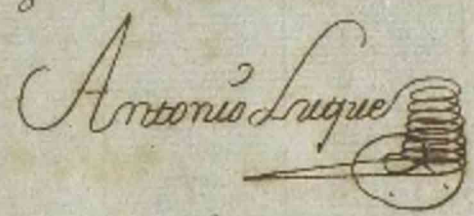 Antonio Luque